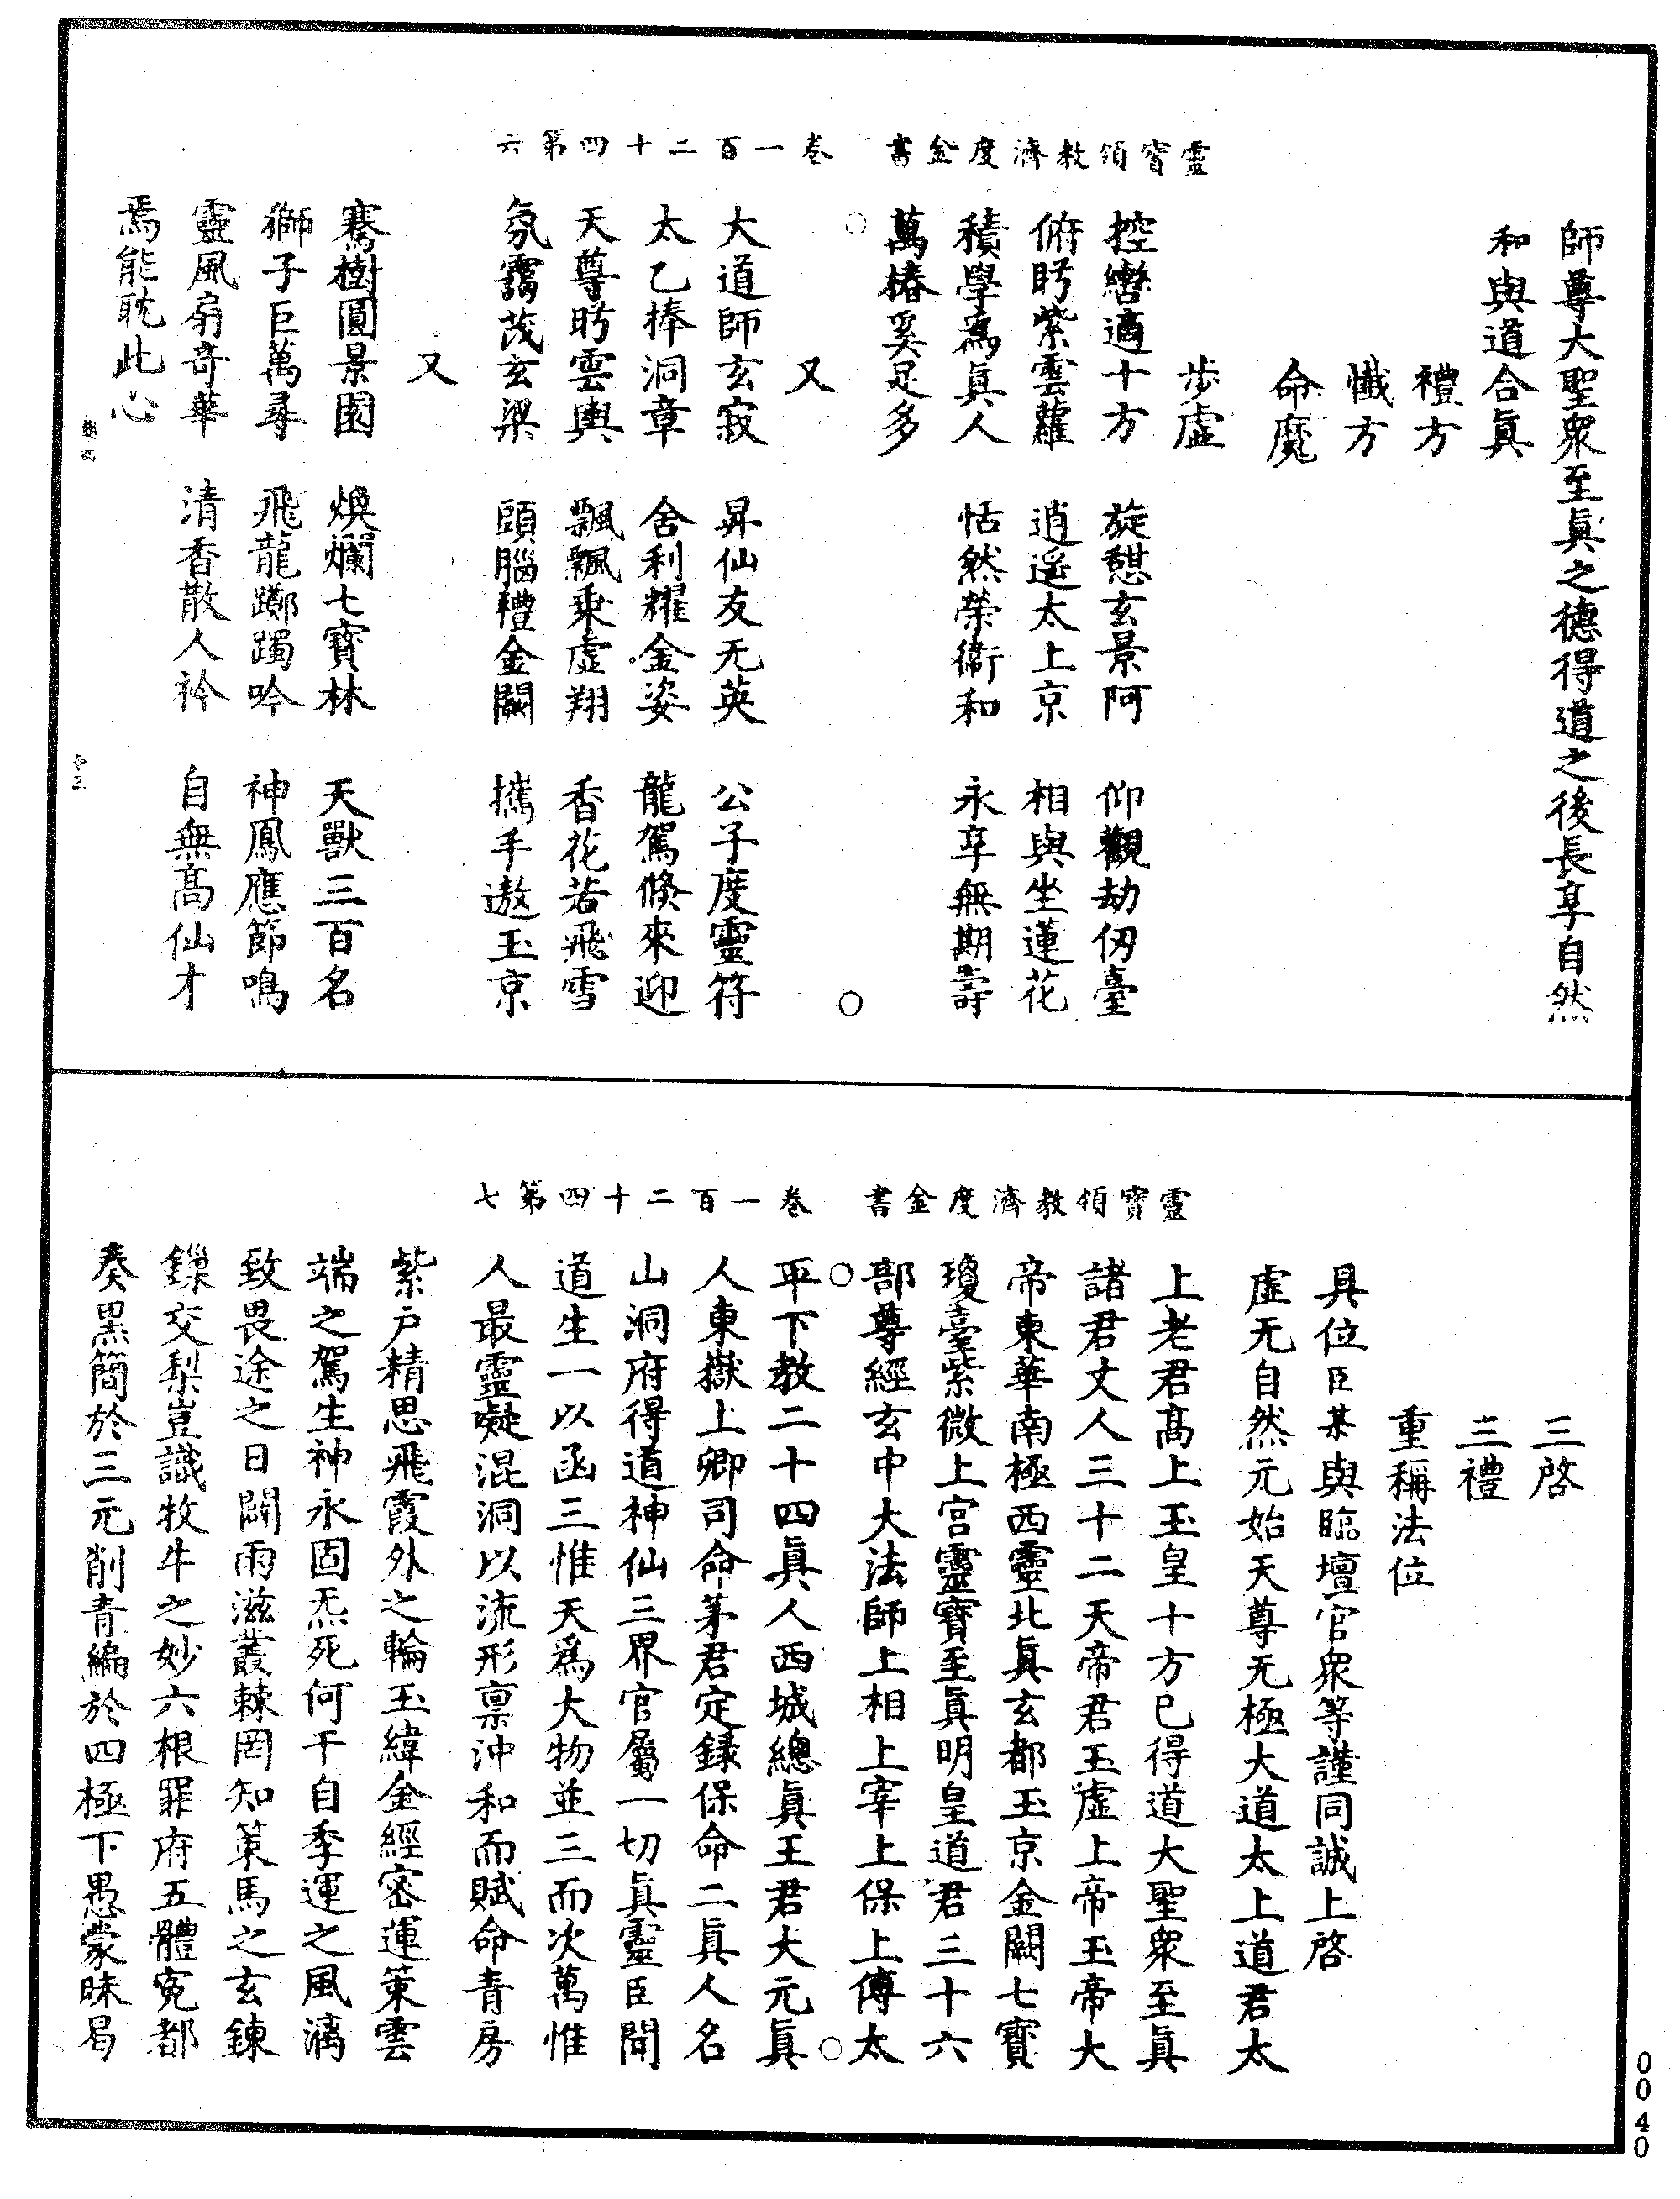 靈寶領教濟度金書　卷一百二十四第六
師尊大聖眾至眞之德得道之後長享自然
和與道合眞
禮方
懺方
命魔
步虛
控轡適十方　旋憩玄景阿　仰觀劫仞臺
俯眄紫雲蘿　逍遙太上京　相與坐蓮花
積學爲眞人　恬然榮衞和　永享無期壽
萬椿奚足多
又
大道師玄寂　昇仙友无英　公子度靈符
太乙捧洞章　舍利耀金姿　龍駕倐來迎
天尊眄雲輿　飄飄乘虛翔　香花若飛雪
氛靄茂玄梁　頭腦禮金闕　攜手遨玉京
又
騫樹圓景園　煥爛七寶林　天獸三百名
獅子巨萬尋　飛龍躑躅吟　神鳳應節鳴
靈風扇奇華　清香散人衿　自無高仙才
焉能耽此心
靈寶領教濟度金書　卷一百二十四第七
三啓
三禮
重稱法位
具位臣某與臨壇官眾等謹同誠上啓
虛无自然元始天尊无極大道太上道君太
上老君高上玉皇十方已得道大聖眾至眞
諸君丈人三十二天帝君玉虛上帝玉帝大
帝東華南極西靈北眞玄都玉京金闕七寶
瓊臺紫微上宮靈寶至眞明皇道君三十六
部尊經玄中大法師上相上宰上保上傅太
平下教二十四眞人西城總眞王君大元眞
人東嶽上卿司命茅君定錄保命二眞人名
山洞府得道神仙三界官屬一切眞靈臣聞
道生一以函三惟天爲大物並三而次萬惟
人最靈凝混洞以流形禀沖和而賦命青房
紫户精思飛霞外之輪玉緯金經密運策雲
端之駕生神永固炁死何干自季運之風漓
致畏途之日闢雨滋叢棘罔知策馬之玄鍊
鏁交梨豈識牧牛之妙六根罪府五體寃都
奏黑簡於三元削青編於四極下愚蒙昧曷
0040